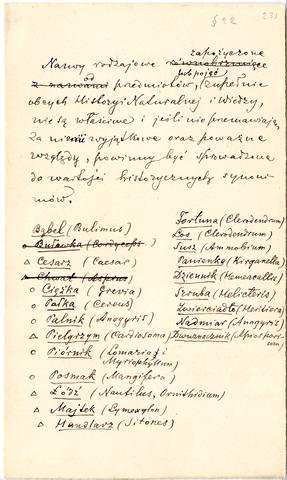 § 22 231
zapożyczone
Nazwy rodzajowe równobrzmiące
od lub pojęć
z nazwami przedmiotów, zupełnie
obcych Historyi Naturalnej i wiedzy,
nie są właściwe i jeśli nie przemawiają
za niemi wyjątkowe oraz poważne
względy, powinny być sprowadzone
do wartości historycznych synoni-
mów.
Bąbel (Bulimus)
Buławka (Cordyceps)
△ Cesarz (Caesar)
Chwat (Aspius)
○ Ciężka (Grevia)
○ Pałka (Cereus)
○ Palnik (Anagyris)
△ Pielgrzym (Cardiosoma)
○ Piórnik (Lomaria i
Myriophyllum)
○ Posmak (Mangifera)
△ Łódź (Nautilus, Ornithidium)
△ Majtek (Lymexylon)
△ Handlarz (Sitones)
Fortuna (Clerodendrum)
Los (Clerodendrum)
Susz (Ammobium)
Panienka (Kirganella)
Dziennik (Hemerocallis)
Śruba (Helicteris)
Zwierciadło (Heritiera)
Nadmiar (Anagyris)